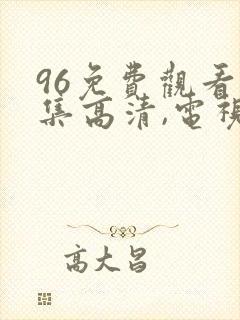 96免費觀看
集高清,電視
高大昌